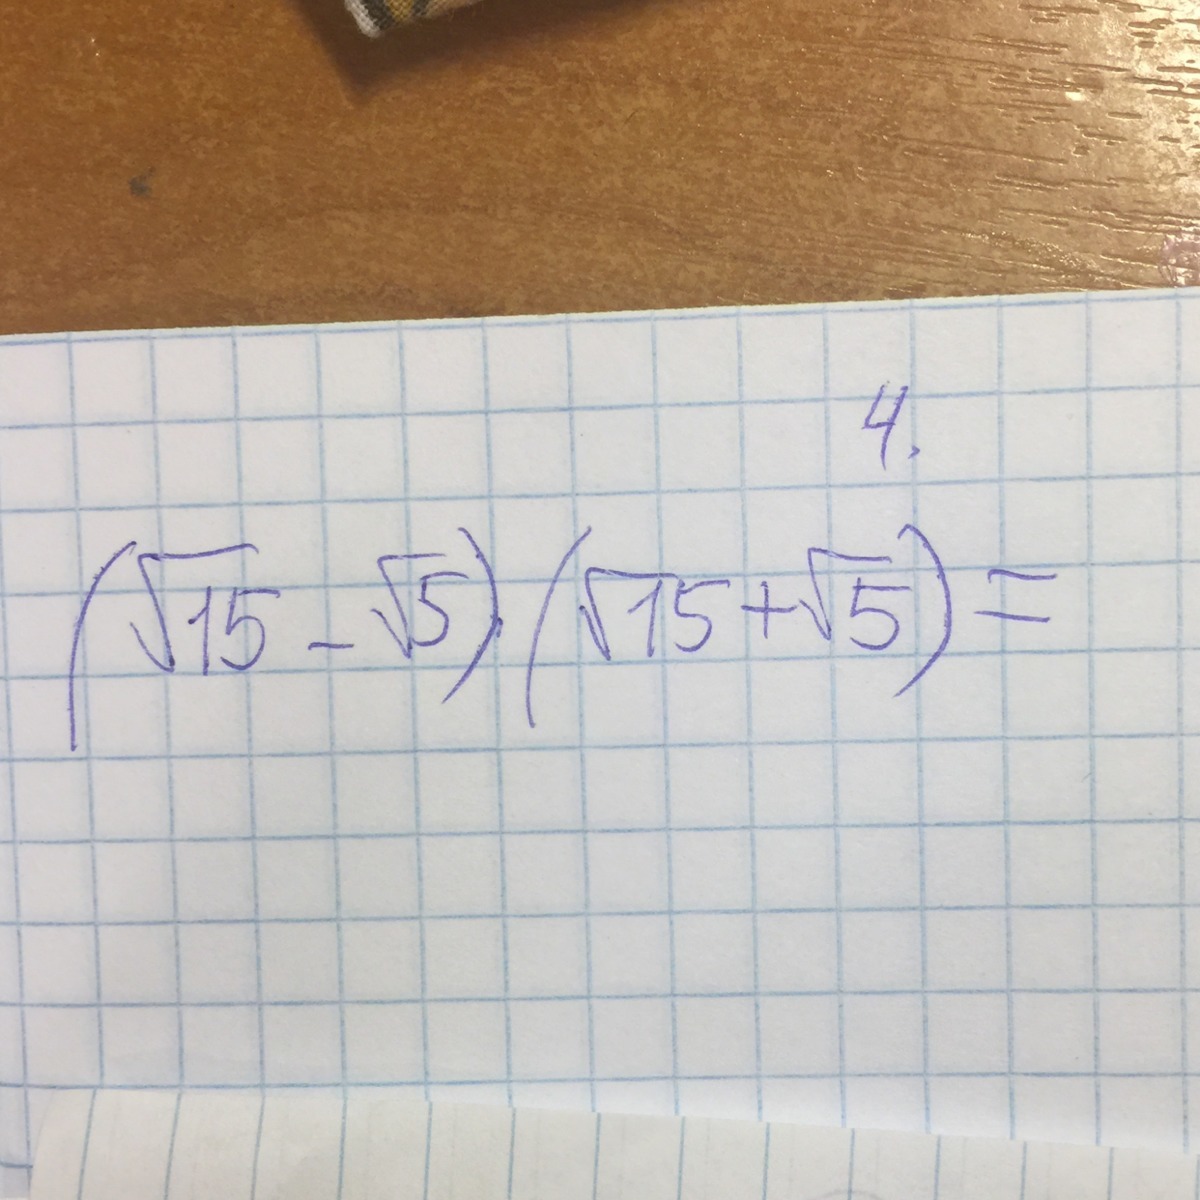 4.
(√15 - √5) · (√15 + √5) =